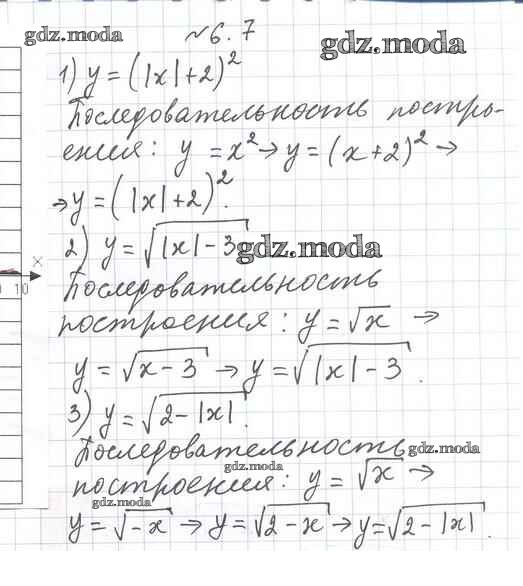 gdz.moda
№6.7
gdz.moda
1) y = (|x|+2)²
Последовательность постро-
ения: y = x² → y = (x+2)² →
→ y = (|x|+2)².
2) y = √|x| - 3
gdz.moda
x
10
Последовательность
построения: y = √x →
y = √x - 3 → y = √|x| - 3.
3) y = √2 - |x|.
Последовательность
gdz.moda
gdz.moda
построения: y = √x →
gdz.moda
y = √-x → y = √2 - x → y = √2 - |x|.